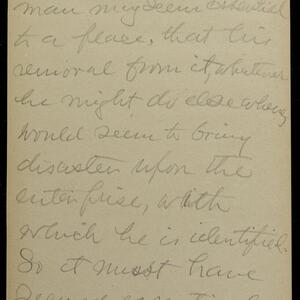 man may seem essential
to a place, that his
removal from it, whatever
he might do elsewhere,
would seem to bring
disaster upon the
enterprise, with
which he is identified.
So it must have